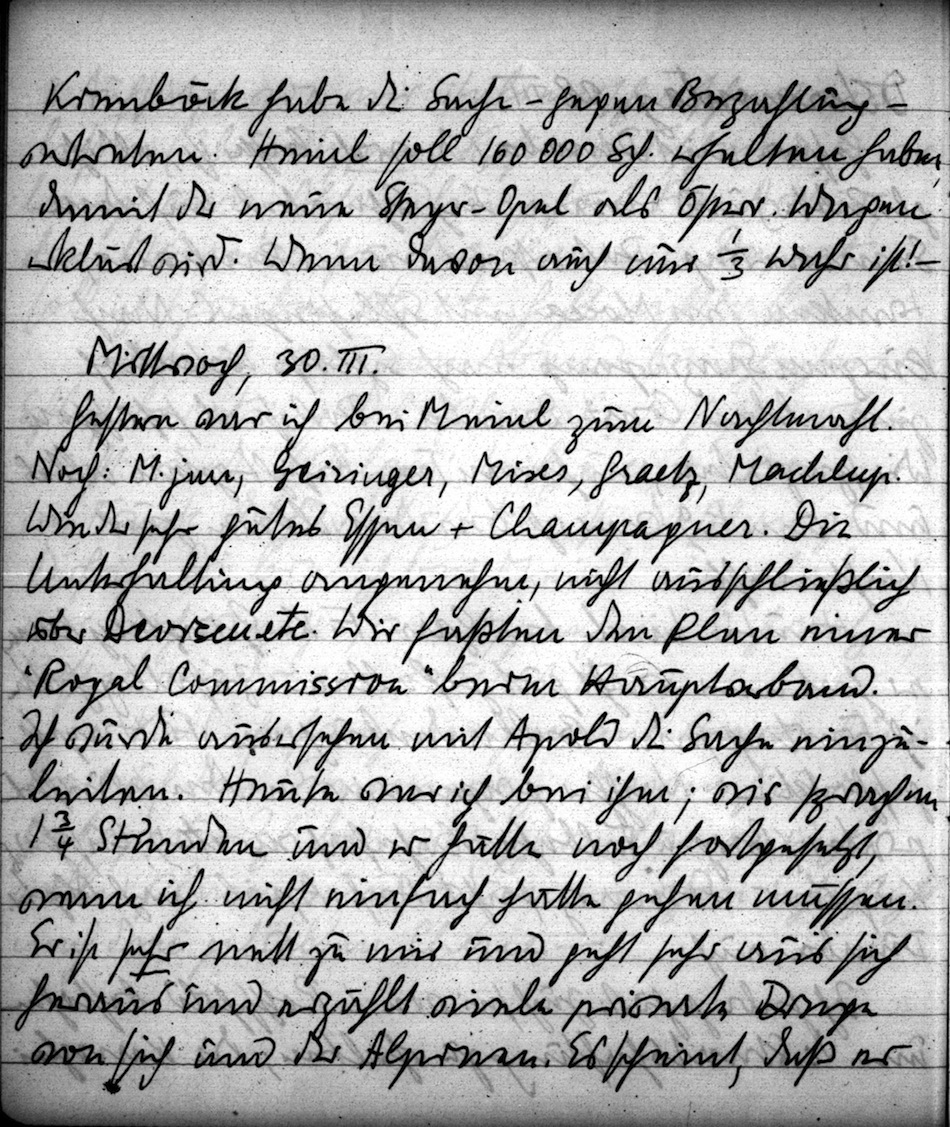 Krenböck habe die Sache – gegen Bezahlung –
vertreten. Heinl soll 160 000 Sch. erhalten haben,
damit der neue Steyr-Opel als österr. Wagen
erklärt wird. Wenn davon auch nur 1/3 wahr ist! –
Mittwoch, 30. III.
Gestern war ich bei Meinl zum Nachtmahl.
Noch: M. jun., Geiringer, Mises, Graetz, Machlup.
Wieder sehr gutes Essen + Champagner. Die
Unterhaltung angenehm, nicht ausschließlich
über Devisen etc. Wir faßten den Plan einer
"Royal Commission" beim Hauptverband.
Ich wurde ausersehen mit Apold die Sache einzu-
leiten. Heute war ich bei ihm; wir sprachen
1 3/4 Stunden und er hätte noch fortgesetzt,
wenn ich nicht einfach hätte gehen müssen.
Er ist sehr nett zu mir und geht sehr aus sich
heraus und erzählt viele private Dinge
von sich und der Alpinen. Es scheint, daß er